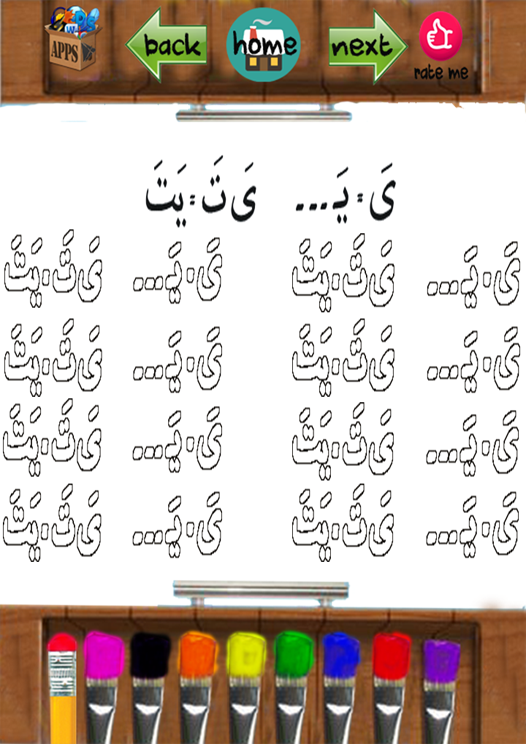 APPS back home next rate me
یَ : یَـ... یَ تَ : یَتَ
یَ : یَـ... یَ تَ : یَتَ یَ : یَـ... یَ تَ : یَتَ
یَ : یَـ... یَ تَ : یَتَ یَ : یَـ... یَ تَ : یَتَ
یَ : یَـ... یَ تَ : یَتَ یَ : یَـ... یَ تَ : یَتَ
یَ : یَـ... یَ تَ : یَتَ یَ : یَـ... یَ تَ : یَتَ